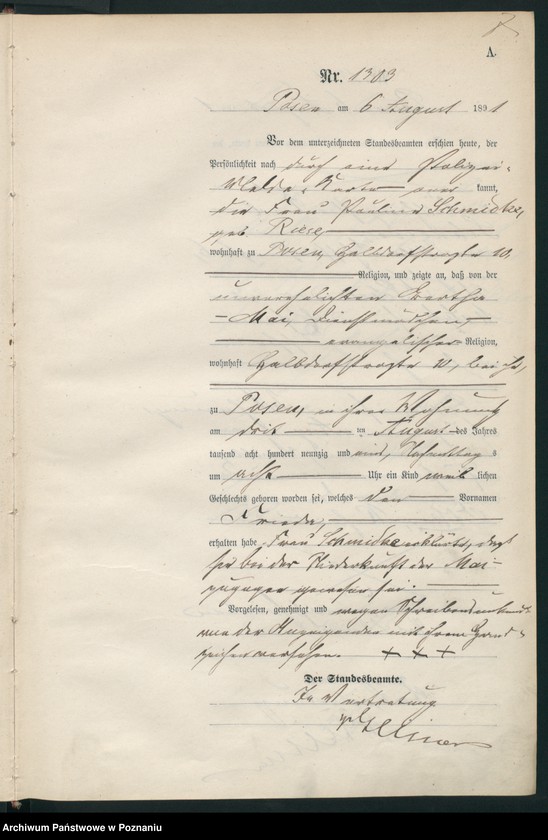 A.
Nr. 1303
Posen am 6 August 1891
Vor dem unterzeichneten Standesbeamten erschien heute, der
Persönlichkeit nach durch eine Polizei-
Melde-Karte aner kannt,
die Frau Pauline Schmidtke,
geb. Riese,
wohnhaft zu Posen, Halbdorfstraße 10,
Religion, und zeigte an, daß von der
unverehelichten Bertha
Mai, Dienstmädchen,
evangelischer Religion,
wohnhaft Halbdorfstraße 10, bei ihr,
zu Posen, in ihrer Wohnung
am drit ten August des Jahres
tausend acht hundert neunzig und eins, Nachmittags
um acht Uhr ein Kind weib lichen
Geschlechts geboren worden sei, welches den Vornamen
Frieda,
erhalten habe. Frau Schmidtke erklärte, daß
sie bei der Niederkunft der Mai
zugegen gewesen sei.
Vorgelesen, genehmigt und wegen Schreibensunkunde
von der Anzeigenden mit ihrem Hand-
zeichen versehen. + + +
Der Standesbeamte.
In Vertretung
Archiwum Państwowe w Poznaniu